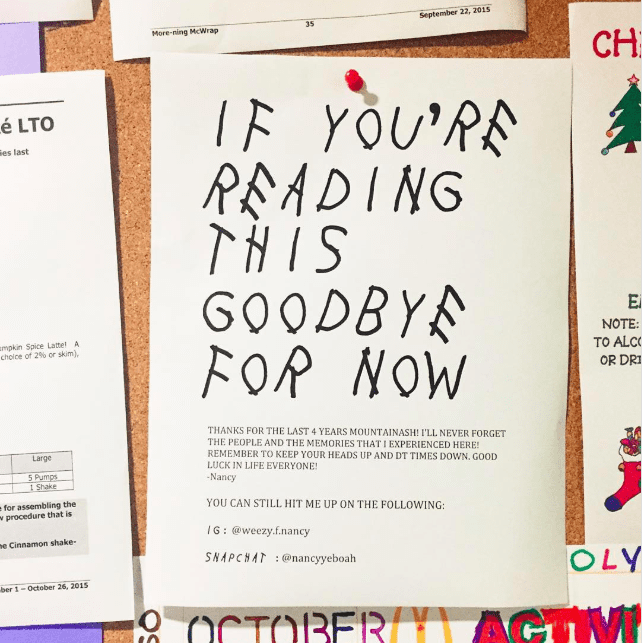 More-ning McWrap
35
September 22, 2015
é LTO
ies last
umpkin Spice Latte! A
choice of 2% or skim),
Large
5 Pumps
1 Shake
e for assembling the
w procedure that is
he Cinnamon shake-
ber 1 – October 26, 2015
IF YOU'RE
READING
THIS
GOODBYE
FOR NOW
THANKS FOR THE LAST 4 YEARS MOUNTAINASH! I'LL NEVER FORGET
THE PEOPLE AND THE MEMORIES THAT I EXPERIENCED HERE!
REMEMBER TO KEEP YOUR HEADS UP AND DT TIMES DOWN. GOOD
LUCK IN LIFE EVERYONE!
-Nancy
YOU CAN STILL HIT ME UP ON THE FOLLOWING:
IG: @weezy.f.nancy
SNAPCHAT : @nancyyeboah
CH
NOTE:
TO ALCO
OR DRI
OLY
OCTOBER
ACTIV